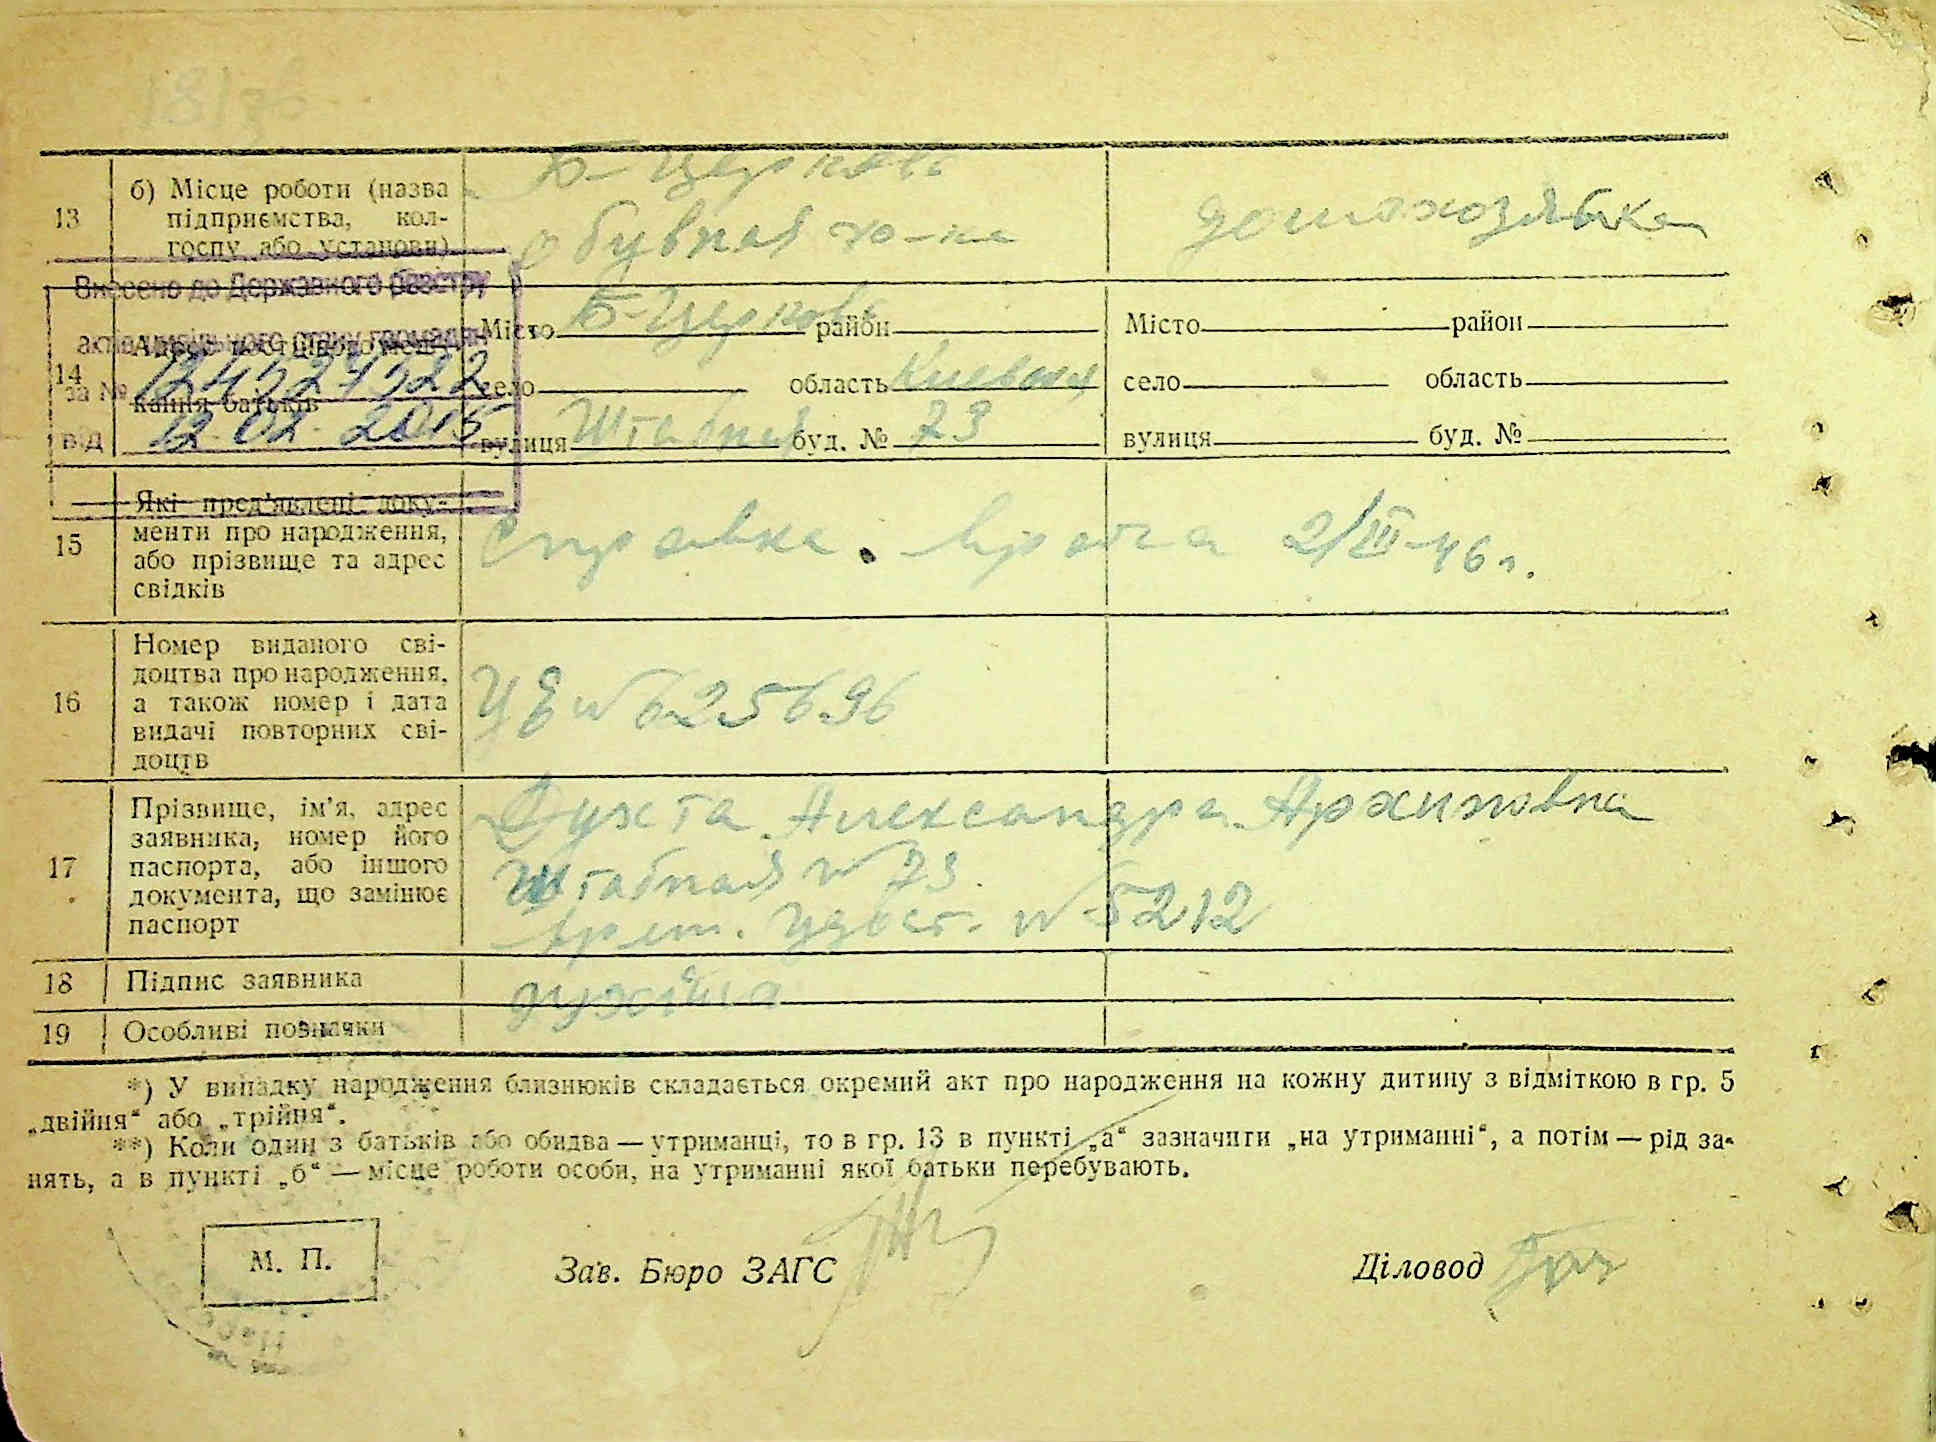 13 б) Місце роботи (назва підприємства, колгоспу або установи)
Б-Церковь
Обувная ф-ка
домохозяйка
Внесено до Державного реєстру
актів цивільного стану громадян
за № 12452475322
від 12.02.2015
14 Адрес постійного мешкання батьків
Місто Б-Церковь район
село область Киевская
вулиця Штабная буд. № 73
Місто район
село область
вулиця буд. №
15 Які пред'явлені документи про народження, або прізвище та адрес свідків
Справка врача 2/III-46 г.
16 Номер виданого свідоцтва про народження, а також номер і дата видачі повторних свідоцтв
ЦЕ № 625696
17 Прізвище, ім'я, адрес заявника, номер його паспорта, або іншого документа, що замінює паспорт
Духта Александра Архиповна
Штабная № 73
врем. удост. № 5212
18 Підпис заявника
19 Особливі позначки
*) У випадку народження близнюків складається окремий акт про народження на кожну дитину з відміткою в гр. 5
„двійня“ або „трійня“.
**) Коли один з батьків або обидва — утриманці, то в гр. 13 в пункті „а“ зазначити „на утриманні“, а потім — рід за-
нять, а в пункті „б“ — місце роботи особи, на утриманні якої батьки перебувають.
М. П.
Зав. Бюро ЗАГС
Діловод